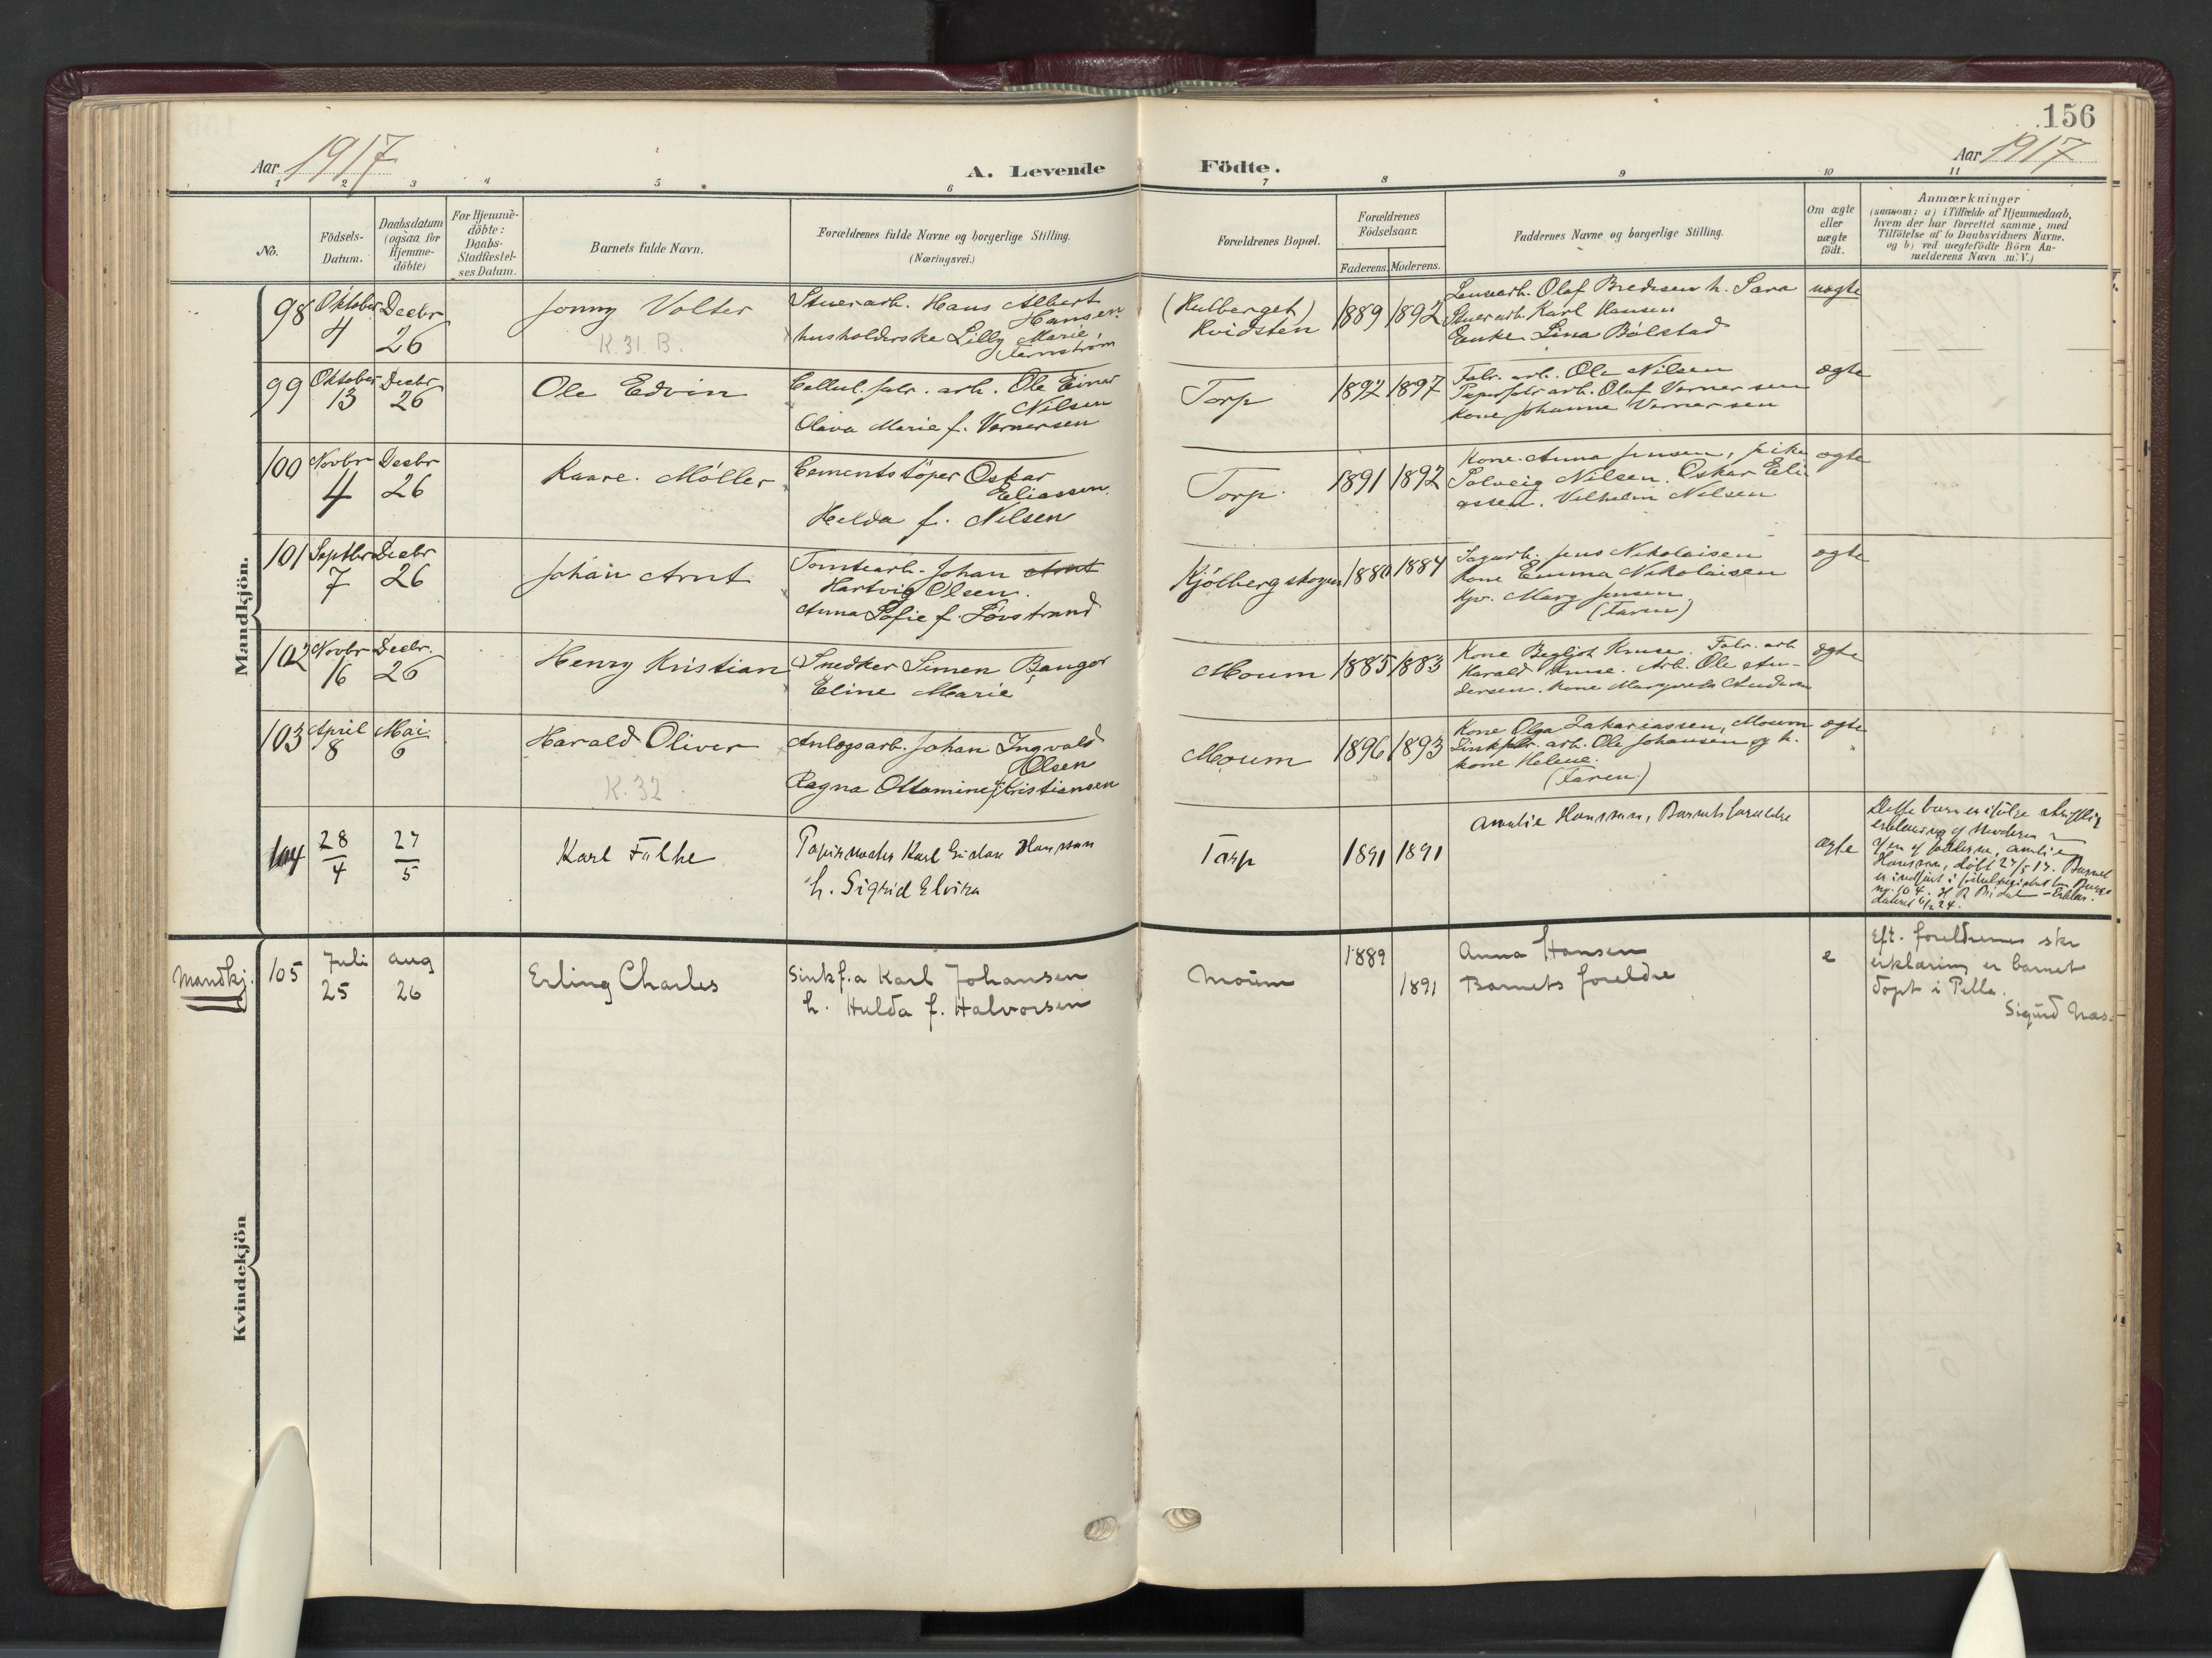 156
Aar 1917
A. Levende Födte.
Aar 1917
1 2 3 4 5 6 7 8 9 10 11
No.
Födsels-
Datum.
Daabsdatum
(ogsaa for
Hjemme-
döbte)
For Hjemme-
döbte:
Daabs-
Stadfæstel-
ses Datum.
Barnets fulde Navn.
Forældrenes fulde Navne og borgerlige Stilling.
(Næringsvei.)
Forældrenes Bopæl.
Forældrenes
Födselsaar.
Faderens. Moderens.
Faddernes Navne og borgerlige Stilling.
Om ægte
eller
uægte
födt.
Anmærkninger
(saasom: a) i Tilfælde af Hjemmedaab,
hvem der har forrettet samme, med
Tilföielse af to Daabsvidners Navne.
og b) ved uægtefödte Börn An-
melderens Navn m. V.)
Mandkjön.
98
Oktober
4
Decbr
26
Jonny Volter
K. 31 B.
Stuerarb. Hans Albert
Hansen.
husholderske Lilly Marie,
(Hulberget)
Kvidsten
1889 1892
Olaf Bredesen h. Sara
Stuerarb. Karl Hansen
Enke Lina Bólstad
uægte
99
Oktober
13
Decbr
26
Ole Edvin
Cellul. fabr. arb. Ole Einar
Nilsen
Oliva Marie f. Vernersen
Torp
1892 1897
Fabr. arb. Ole Nilsen
Papirfabr arb. Olaf Vernersen
Kone Johanne Vernersen
ægte
100
Novbr
4
Decbr
26
Kaare Möller
Cementstöper Oskar
Eeliassen.
Helda f. Nilsen
Torp.
1891 1892
Kone Anna Jensen, pike
Solveig Nilsen. Oskar Eeli-
assen. Vilhelm Nilsen
ægte
101
Septbr
7
Decbr
26
Johan Arnt
Tomtearb. Johan Arnt
Hartvig Olsen.
Anna Sofie f. Lövstrand
Kjölbergskogen
1880 1884
Sagarb. Jens Nikolaisen
Kone Emma Nikolaisen
Mary Jensen
(Faren)
ægte
102
Novbr
16
Decbr.
26
Henry Kristian
Snedker Simen Bangor
Eline Marie
Moum
1885 1883
Kone Bergljot Kruse. Fabr. arb
Harald Kruse. Arb. Ole An-
dersen. Kone Margrete Andersen
ægte
103
April
8
Mai
6
Harald Oliver
K. 32
Anlægsarb. Johan Ingvald
Olsen
Ragna Ottamine f. Kristiansen
Moum
1896 1893
Kone Olga Zakariassen, Moum
Zinkfabr. arb. Ole Johansen og h.
kone Helene.
(Faren)
ægte
104
28
4
27
5
Karl Fülhe
Karl Gustav Hansson
h. Sigrid Elvira
Torp
1891 1891
Amalie Hansson, Barnets forældre
ægte
Dette barn er ifölge skriftlig
erklæring af Moderen
af fadderne, Amalie
Hansson, döbt 27/5 17. Barnet
er indfört i
Mandkj.
105
Juli
25
aug
26
Erling Charles
Sinkf.a Karl Johansen
h. Hulda f. Halvorsen
Moum
1889
1891
Anna Hansen
Barnets foreldre
e
Eft. foreldrenes skr
erklæring er barnet
döpt i Pella.
Sigurd Næs.
Kvindekjön